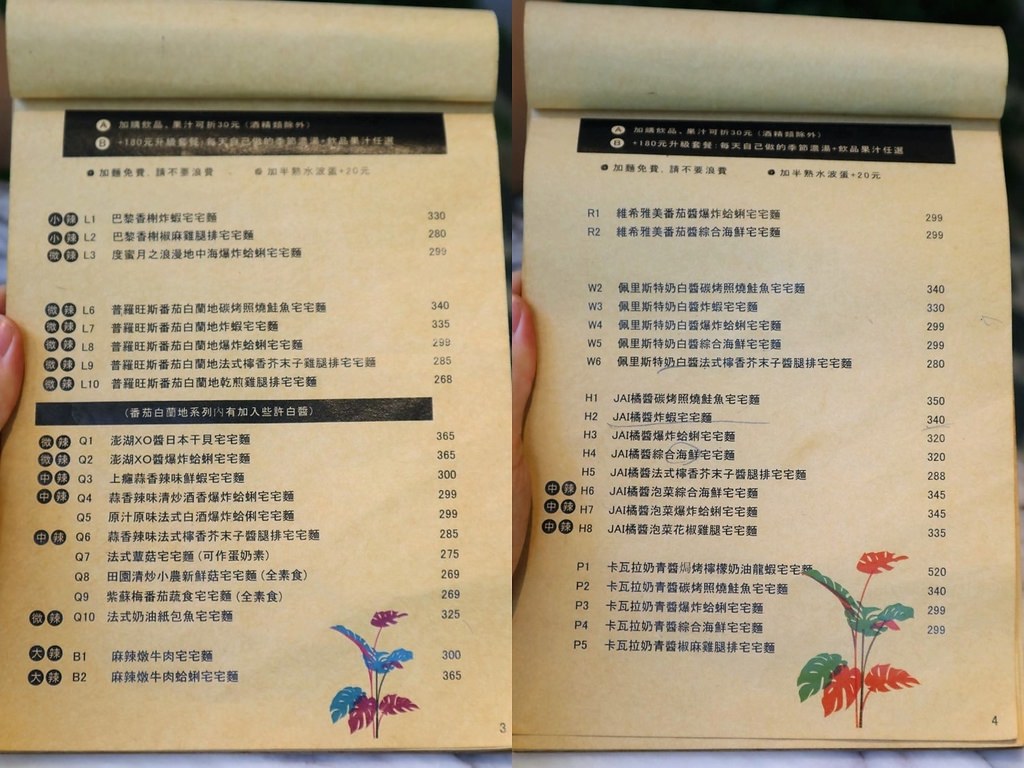 A 加購飲品、果汁可折30元(酒精類除外)
B +180元升級套餐:每天自己做的季節濃湯+飲品果汁任選
加麵免費、請不要浪費 加半熟水波蛋+20元
小辣 L1 巴黎香榭炸蝦宅宅麵 330
小辣 L2 巴黎香榭椒麻雞腿排宅宅麵 280
微辣 L3 度蜜月之浪漫地中海爆炸蛤蜊宅宅麵 299
微辣 L6 普羅旺斯番茄白蘭地碳烤照燒鮭魚宅宅麵 340
微辣 L7 普羅旺斯番茄白蘭地炸蝦宅宅麵 335
微辣 L8 普羅旺斯番茄白蘭地爆炸蛤蜊宅宅麵 299
微辣 L9 普羅旺斯番茄白蘭地法式檸香芥末子雞腿排宅宅麵 285
微辣 L10 普羅旺斯番茄白蘭地乾煎雞腿排宅宅麵 268
(番茄白蘭地系列內有加入些許白醬)
微辣 Q1 澎湖XO醬日本干貝宅宅麵 365
微辣 Q2 澎湖XO醬爆炸蛤蜊宅宅麵 365
中辣 Q3 上癮蒜香辣味鮮蝦宅宅麵 300
中辣 Q4 蒜香辣味清炒酒香爆炸蛤蜊宅宅麵 299
Q5 原汁原味法式白酒爆炸蛤俐宅宅麵 299
中辣 Q6 蒜香辣味法式檸香芥末子醬腿排宅宅麵 285
Q7 法式蕈菇宅宅麵(可作蛋奶素) 275
Q8 田園清炒小農新鮮菇宅宅麵(全素食) 269
Q9 紫蘇梅番茄蔬食宅宅麵(全素食) 269
微辣 Q10 法式奶油紙包魚宅宅麵 325
大辣 B1 麻辣燉牛肉宅宅麵 300
大辣 B2 麻辣燉牛肉蛤蜊宅宅麵 365
3
A 加購飲品、果汁可折30元(酒精類除外)
B +180元升級套餐:每天自己做的季節濃湯+飲品果汁任選
加麵免費、請不要浪費 加半熟水波蛋+20元
R1 維希雅美番茄醬爆炸蛤蜊宅宅麵 299
R2 維希雅美番茄醬綜合海鮮宅宅麵 299
W2 佩里斯特奶白醬碳烤照燒鮭魚宅宅麵 340
W3 佩里斯特奶白醬炸蝦宅宅麵 330
W4 佩里斯特奶白醬爆炸蛤蜊宅宅麵 299
W5 佩里斯特奶白醬綜合海鮮宅宅麵 299
W6 佩里斯特奶白醬法式檸香芥末子醬腿排宅宅麵 280
H1 JAI橘醬碳烤照燒鮭魚宅宅麵 350
H2 JAI橘醬炸蝦宅宅麵 340
H3 JAI橘醬爆炸蛤蜊宅宅麵 320
H4 JAI橘醬綜合海鮮宅宅麵 320
H5 JAI橘醬法式檸香芥末子醬腿排宅宅麵 288
中辣 H6 JAI橘醬泡菜綜合海鮮宅宅麵 345
中辣 H7 JAI橘醬泡菜爆炸蛤蜊宅宅麵 345
中辣 H8 JAI橘醬泡菜花椒雞腿宅宅麵 335
P1 卡瓦拉奶青醬焗烤檸檬奶油龍蝦宅宅麵 520
P2 卡瓦拉奶青醬碳烤照燒鮭魚宅宅麵 340
P3 卡瓦拉奶青醬爆炸蛤蜊宅宅麵 299
P4 卡瓦拉奶青醬綜合海鮮宅宅麵 299
P5 卡瓦拉奶青醬椒麻雞腿排宅宅麵
4